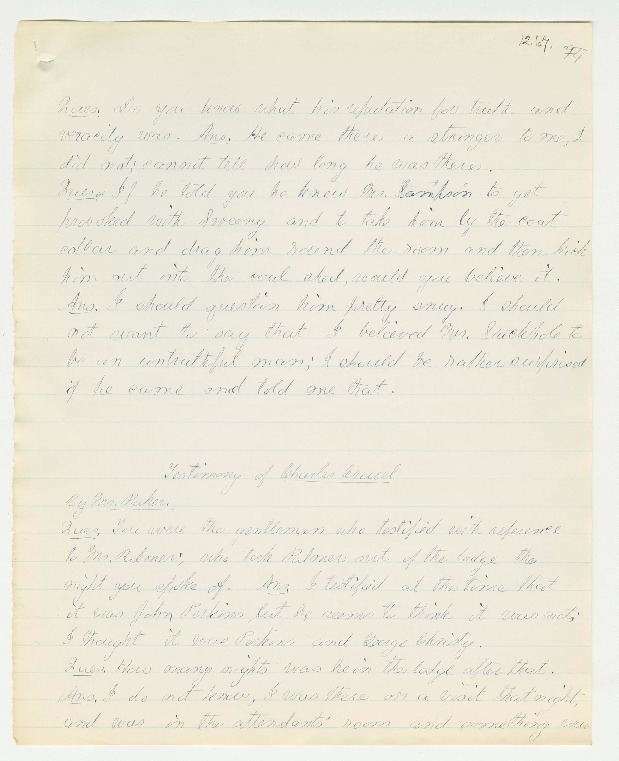 74
Ques. Do you know what his reputation for truth and
veracity was. Ans. He came there a stranger to me, I
did not; cannot tell how long he was there.
Ques. If he told you he knew Mr. Sampson to get
provoked with Sweeny and to take him by the coat
collar and drag him round the room and then kick
him out into the coal shed, would you believe it.
Ans. I should question him pretty snug. I should
not want to say that I believed Mr. to
be an untruthful man; I should be rather surprised
if he came and told me that.
Testimony of Charles
By Mr.
Ques. You were the gentleman who testified with reference
to Mr. who took out of the lodge the
night you spoke of. Ans. I testified at the time that
it was John Perkins, but he seems to think it was not;
I thought it was Perkins and George Christy.
Ques. How many nights was he in the lodge after that.
Ans. I do not know, I was there on a visit that night,
and was in the attendants' room and something was